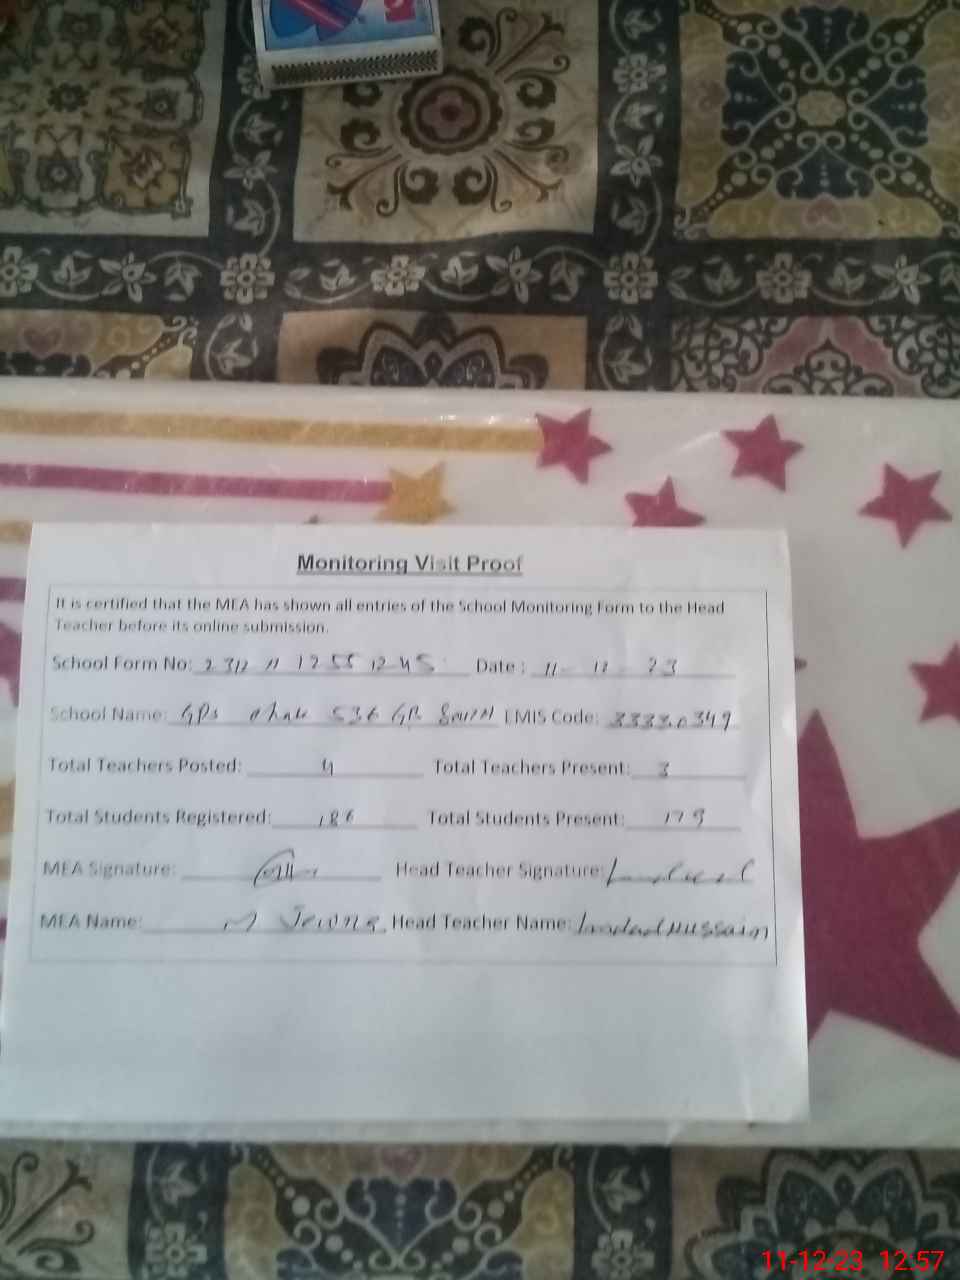 Monitoring Visit Proof
It is certified that the MEA has shown all entries of the School Monitoring Form to the Head
Teacher before its online submission.
School Form No: Date : 11 - 12 - 23
School Name: GPS Chak 536 GB South EMIS Code: 33330349
Total Teachers Posted: 4 Total Teachers Present: 3
Total Students Registered: 186 Total Students Present: 179
MEA Signature: Head Teacher Signature:
MEA Name: M Head Teacher Name: Imdad Hussain
11-12-23 12.57